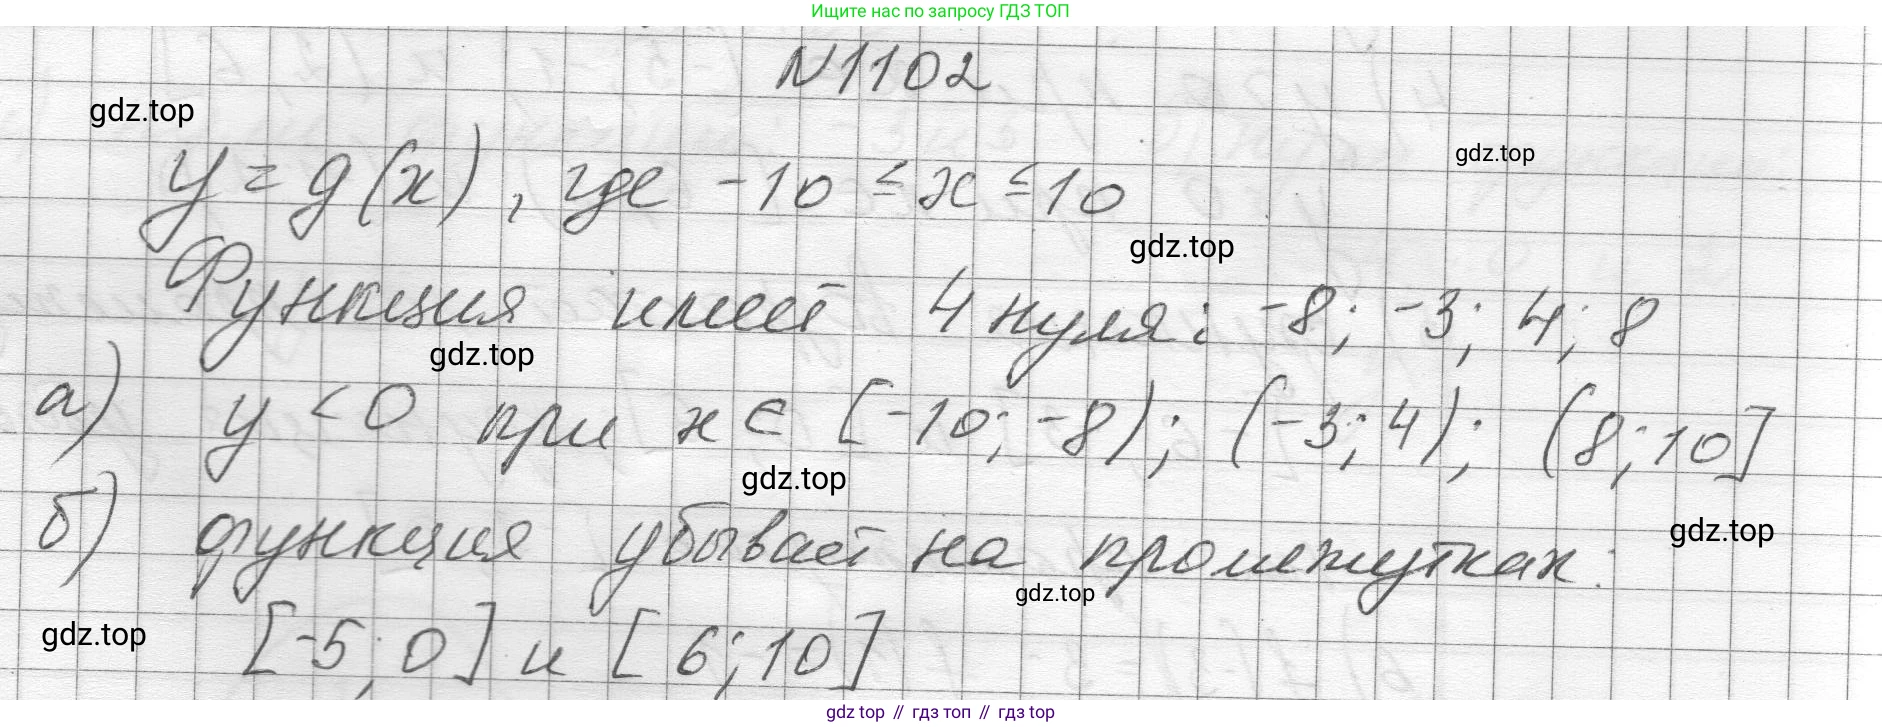 Ищите нас по запросу ГДЗ ТОП
N1102
gdz.top
gdz.top
y = g(x), где -10 ≤ x ≤ 10
gdz.top
Функция имеет 4 нуля: -8; -3; 4; 8
gdz.top
а) y < 0 при x ∈ [-10; -8); (-3; 4); (8; 10]
gdz.top
б) функция убывает на промежутках:
gdz.top
gdz.top
gdz.top
[-5; 0] и [6; 10]
gdz top // гдз топ // гдз top